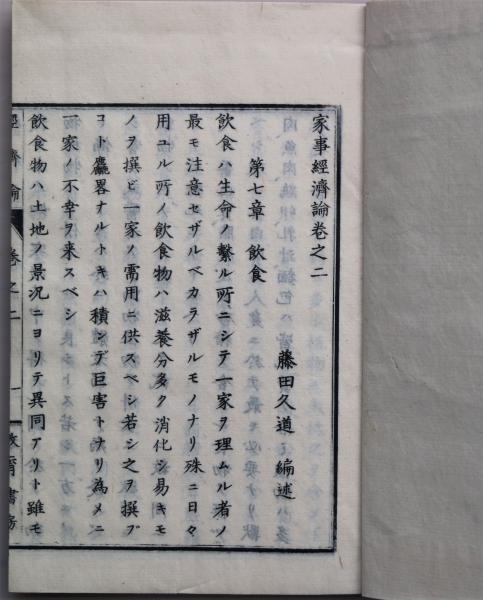 家事經濟論卷之二
藤田久道 編述
第七章 飲食
飲食ハ生命ノ繫ル所ニシテ一家ヲ理ムル者ノ
最モ注意セザルベカラザルモノナリ殊ニ日々
用ユル所ノ飲食物ハ滋養分多ク消化シ易キモ
ノヲ撰ビ一家ノ需用ニ供スベシ若シ之ヲ撰ブ
コト麤畧ナルトキハ積ンデ巨害トナリ為メニ
一家ノ不幸ヲ来スベシ
飲食物ハ土地ノ景况ニヨリテ異同アリト雖モ
經濟論 卷之二 一
書房